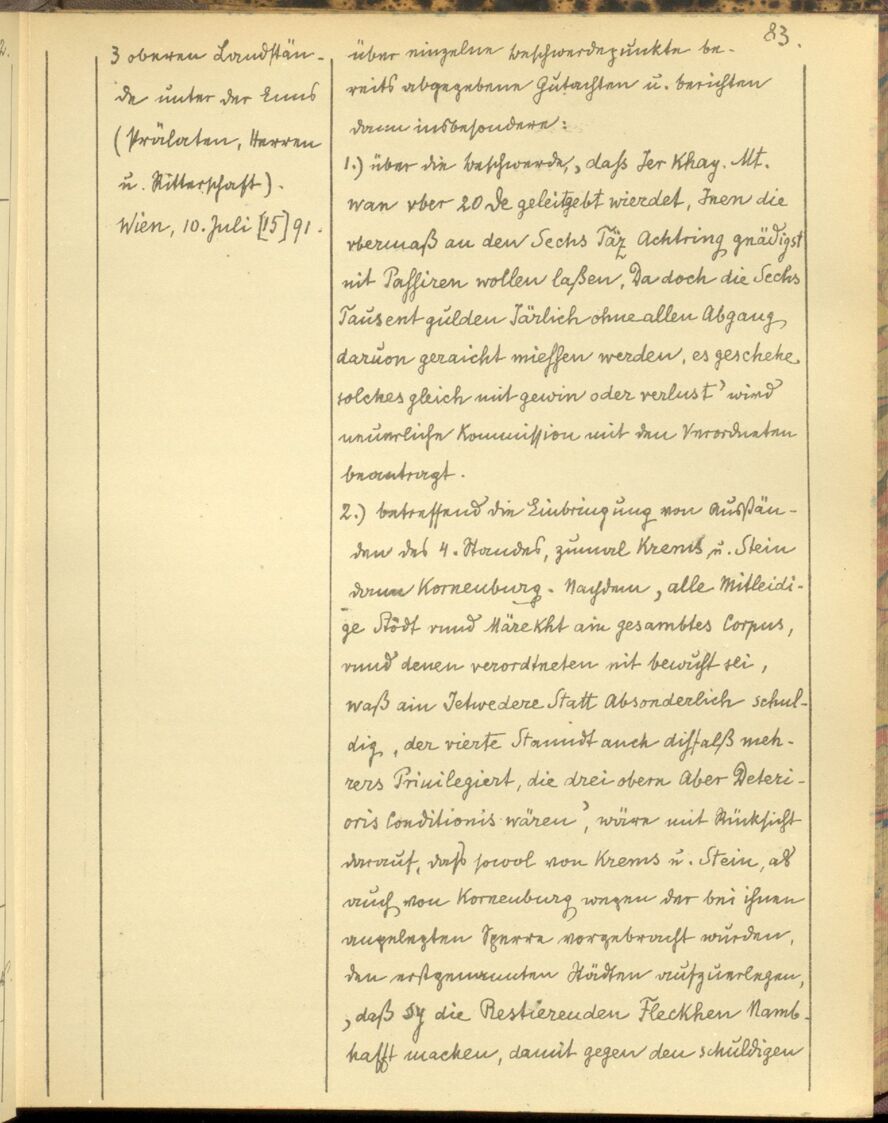 83.
3 oberen Landstän-
de unter der Enns
(Prälaten, Herren
u. Ritterschaft).
Wien, 10. Juli [15]91.
über einzelne Beschwerdepunkte be-
reits abgegebene Gutachten u. berichten
dann insbesondere:
1.) über die Beschwerde, „dass Jer Khay. Mt.
wan vber 20 de geleitgebt wierdet, Jnen die
vbermaß an den Sechs Täz Achtring gnädigst
nit Passiren wollen laßen, Da doch die Sechs
Tausent gulden Järlich ohne allen Abgang
daruon geraicht miessen werden, es geschehe
solches gleich mit gewin oder verlust" wird
neuerliche Kommission mit den Verordneten
beantragt.
2.) betreffend die Einbringung von Ausstän-
den des 4. Standes, zumal Krems u. Stein
dann Korneuburg. Nachdem „alle Mitleidi-
ge Stödt vnnd Märckht ain gesambtes Corpus,
vnnd denen verordtneten nit bewusst sei,
waß ain Jetwedere Statt Absonderlich schul-
dig, der vierte Stanndt auch dissfalß meh-
rers Priuilegiert, die drei obern Aber Deteri-
oris Conditionis wären", wäre mit Rücksicht
darauf, dass sowol von Krems u. Stein, als
auch von Korneuburg wegen der bei ihnen
angelegten Sperre vorgebracht wurden,
den erstgenannten Städten aufzuerlegen,
„daß Sy die Restierenden Fleckhen Namb-
hafft machen, damit gegen den schuldigen